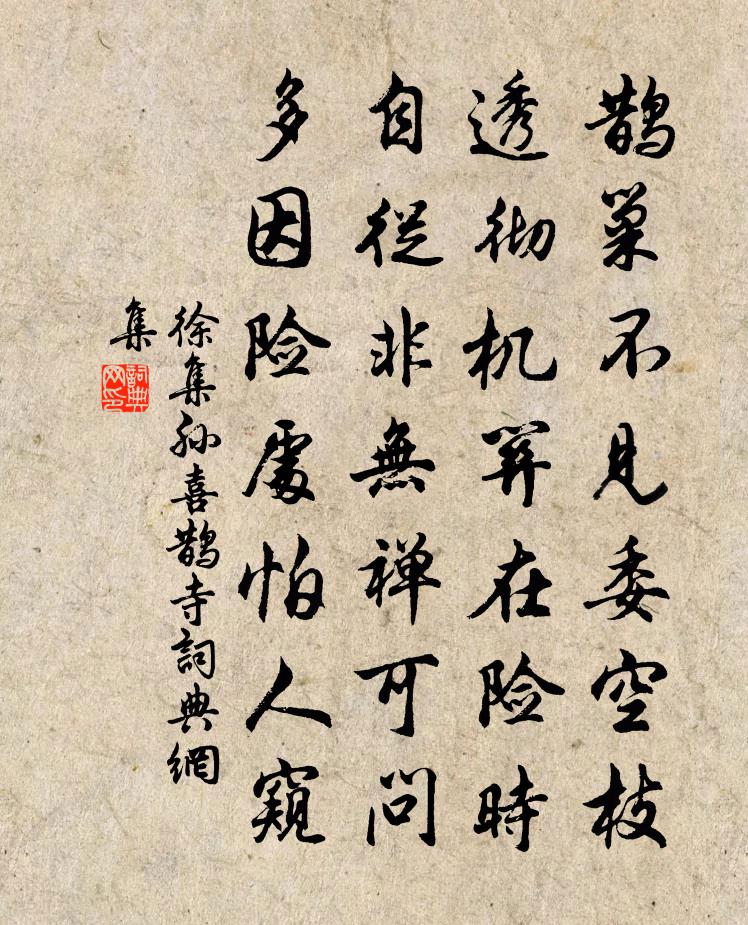 鹊巢不见委空枝
透彻机筭在险时
自從非無禅可問
多因险處怕人窺
徐集孙喜鹊寺詞典網
集
詞典
网印